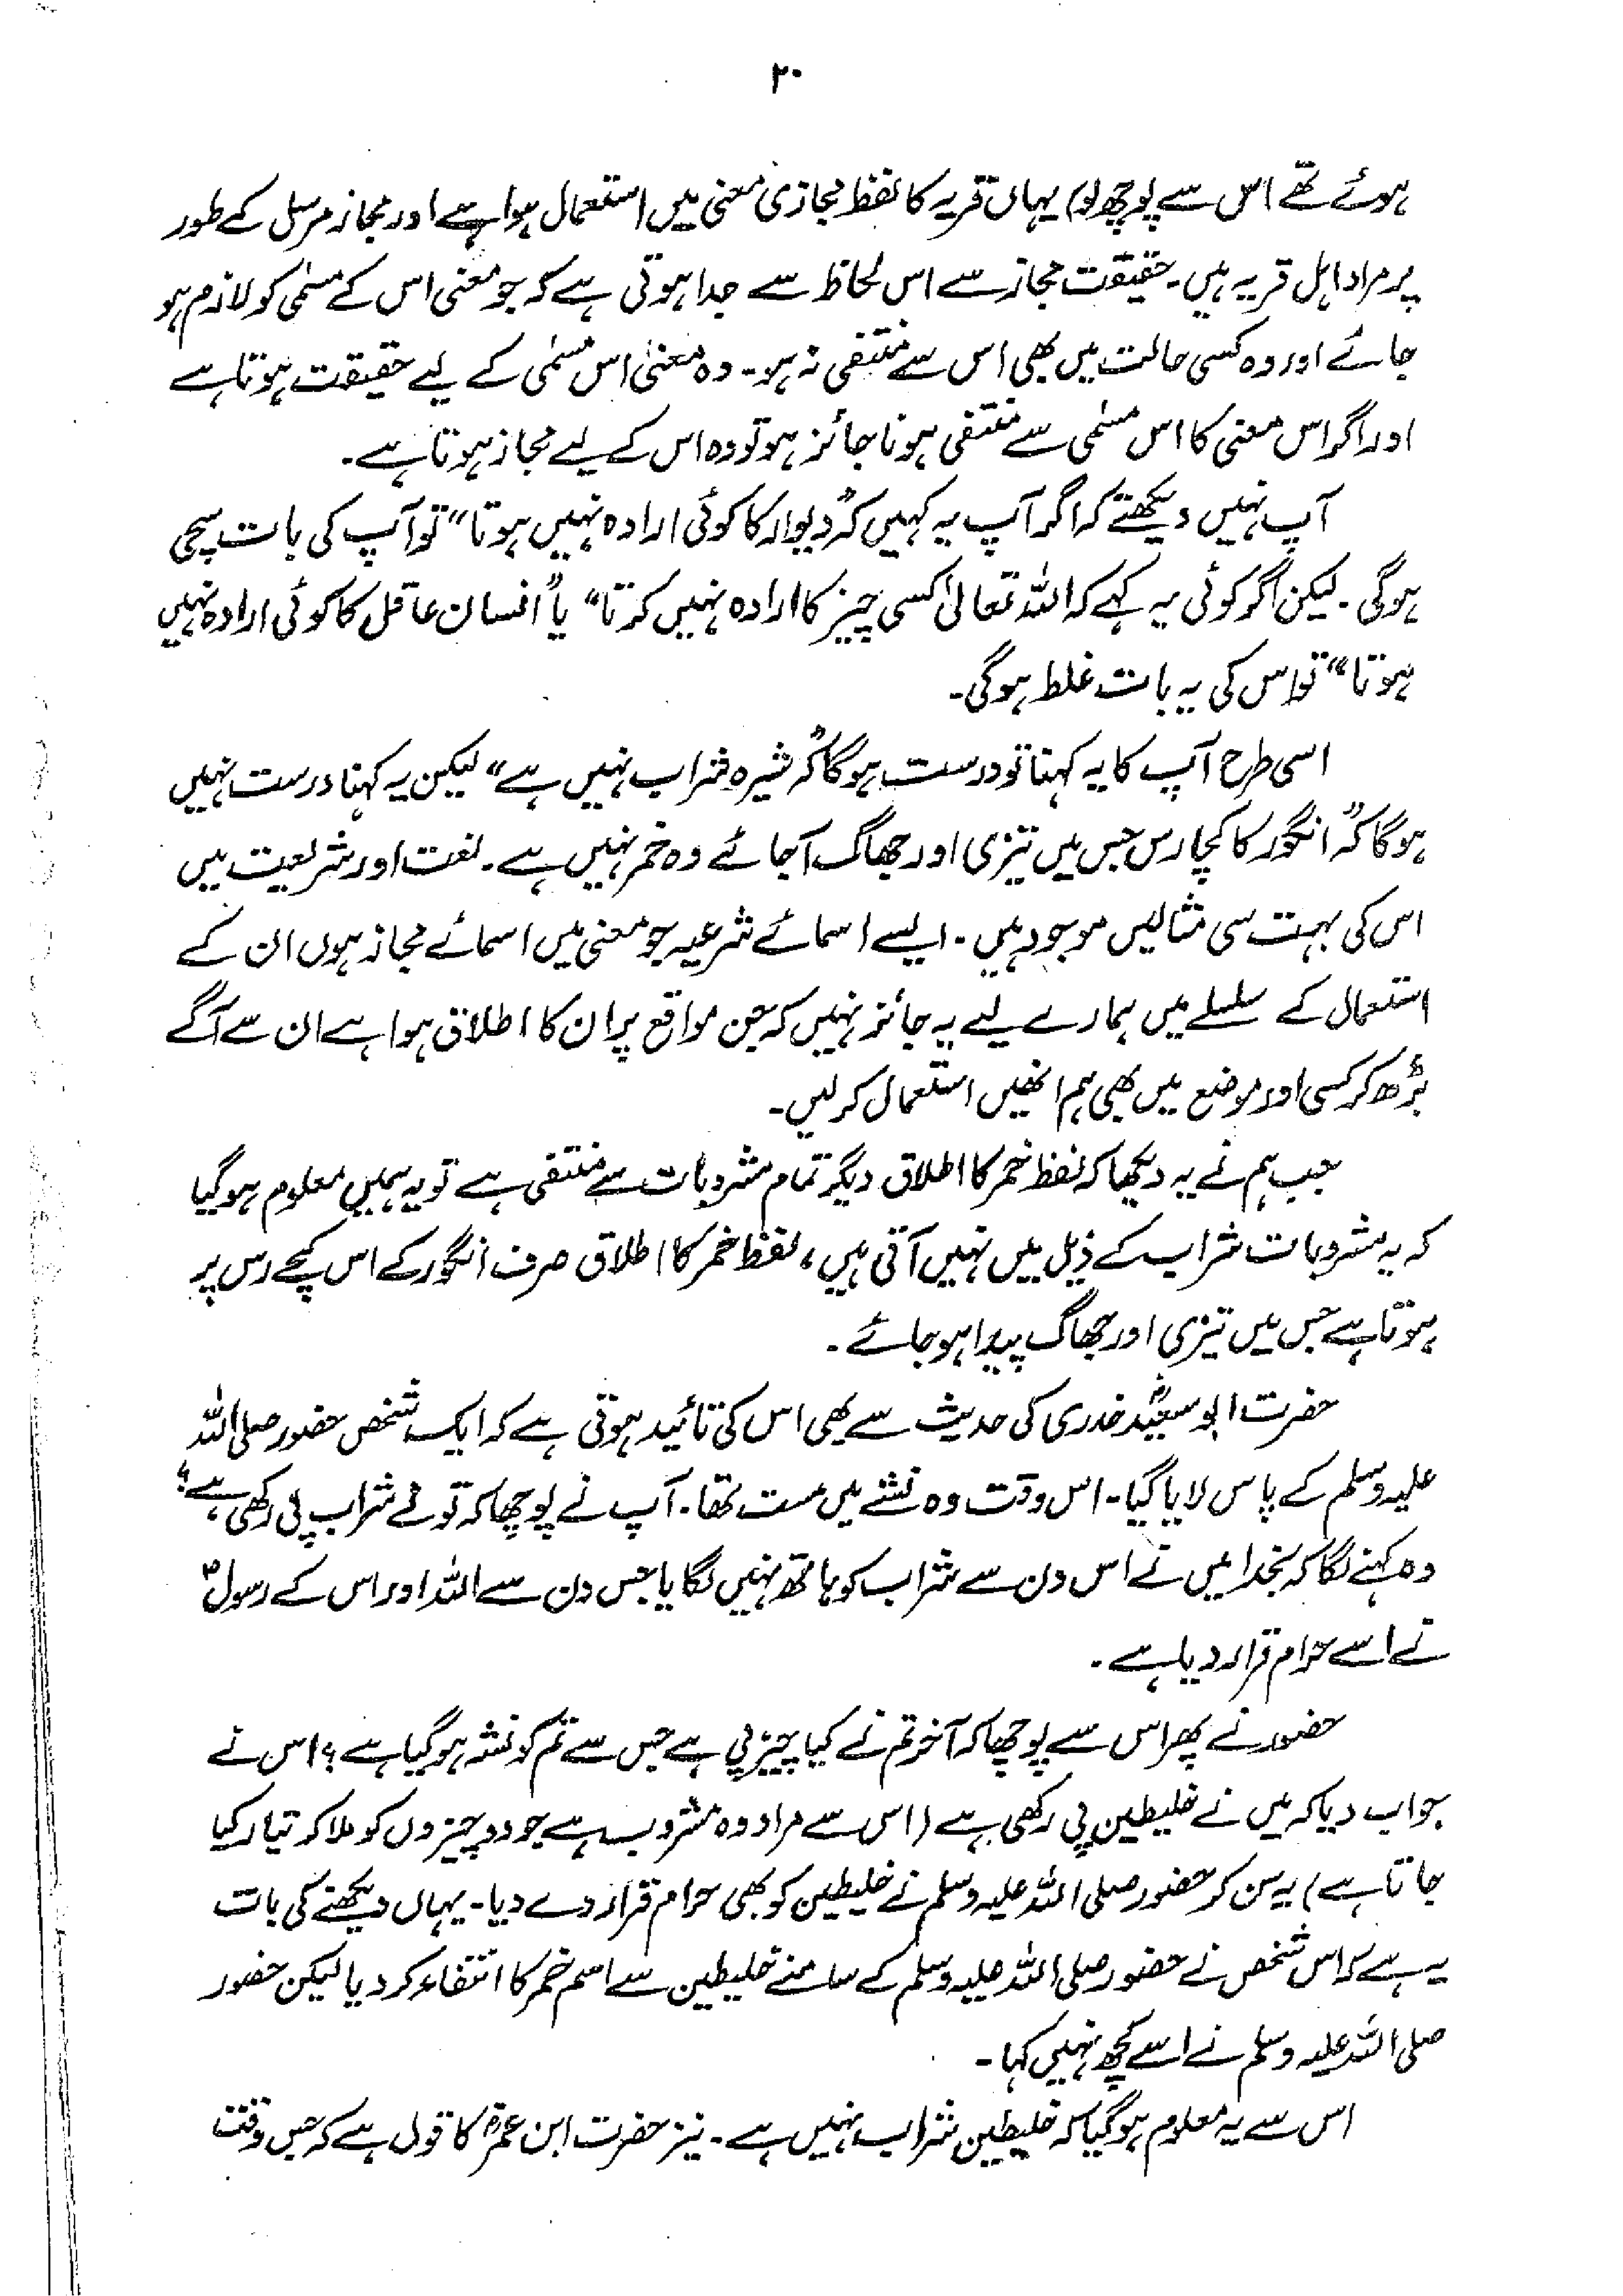 ۲۰
ہوئے تھے اس سے پوچھ لو) یہاں قریہ کا لفظ مجازی معنی میں استعمال ہوا ہے اور مجاز مرسل کے طور
پر مراد اہل قریہ ہیں۔ حقیقت مجاز سے اس لحاظ سے جدا ہوتی ہے کہ جو معنی اس کے مسمٰی کو لازم ہو
جائے اور وہ کسی حالت میں بھی اس سے منتفی نہ ہو۔ وہ معنیٰ اس مسمٰی کے لیے حقیقت ہوتا ہے
اور اگر اس معنی کا اس مسمٰی سے منتفی ہونا جائز ہو تو وہ اس کے لیے مجاز ہوتا ہے۔
آپ نہیں دیکھتے کہ اگر آپ یہ کہیں کہ ”دیوار کا کوئی ارادہ نہیں ہوتا“ تو آپ کی بات سچی
ہوگی۔ لیکن اگر کوئی یہ کہے کہ اللہ تعالیٰ کسی چیز کا ارادہ نہیں کرتا“ یا ”انسان عاقل کا کوئی ارادہ نہیں
ہوتا“ تو اس کی یہ بات غلط ہوگی۔
اسی طرح آپ کا یہ کہنا تو درست ہوگا کہ ”شیرہ شراب نہیں ہے“ لیکن یہ کہنا درست نہیں
ہوگا کہ ”انگور کا کچا رس جس میں تیزی اور جھاگ آجائے وہ خمر نہیں ہے۔ لغت اور شریعت میں
اس کی بہت سی مثالیں موجود ہیں۔ ایسے اسمائے شرعیہ جو معنی میں اسمائے مجاز ہوں ان کے
استعمال کے سلسلے میں ہمارے لیے یہ جائز نہیں کہ جن مواقع پر ان کا اطلاق ہوا ہے ان سے آگے
بڑھ کر کسی اور موضع میں بھی ہم انھیں استعمال کر لیں۔
جب ہم نے یہ دیکھا کہ لفظ خمر کا اطلاق دیگر تمام مشروبات سے منتفی ہے تو یہ ہمیں معلوم ہوگیا
کہ یہ مشروبات شراب کے ذیل میں نہیں آتی ہیں، لفظ خمر کا اطلاق صرف انگور کے اس کچے رس پر
ہوتا ہے جس میں تیزی اور جھاگ پیدا ہو جائے۔
حضرت ابو سعیدؓ خدری کی حدیث سے بھی اس کی تائید ہوتی ہے کہ ایک شخص حضور صلی اللہ
علیہ وسلم کے پاس لایا گیا۔ اس وقت وہ نشے میں مست تھا۔ آپ نے پوچھا کہ تو نے شراب پی رکھی ہے؟
وہ کہنے لگا کہ بخدا میں نے اس دن سے شراب کو ہاتھ نہیں لگایا جس دن سے اللہ اور اس کے رسولؐ
نے اسے حرام قرار دیا ہے۔
حضور نے پھر اس سے پوچھا کہ آخر تم نے کیا چیز پی ہے جس سے تم کو نشہ ہوگیا ہے؟ اس نے
جواب دیا کہ میں نے خلیطین پی رکھی ہے (اس سے مراد وہ مشروب ہے جو دو چیزوں کو ملا کر تیار کیا
جاتا ہے) یہ سن کر حضور صلی اللہ علیہ وسلم نے خلیطین کو بھی حرام قرار دے دیا۔ یہاں دیکھنے کی بات
یہ ہے کہ اس شخص نے حضور صلی اللہ علیہ وسلم کے سامنے خلیطین سے اسم خمر کا انتفاء کر دیا لیکن حضور
صلی اللہ علیہ وسلم نے اسے کچھ نہیں کہا۔
اس سے یہ معلوم ہوگیا کہ خلیطین شراب نہیں ہے۔ نیز حضرت ابن عمرؓ کا قول ہے کہ جس وقت